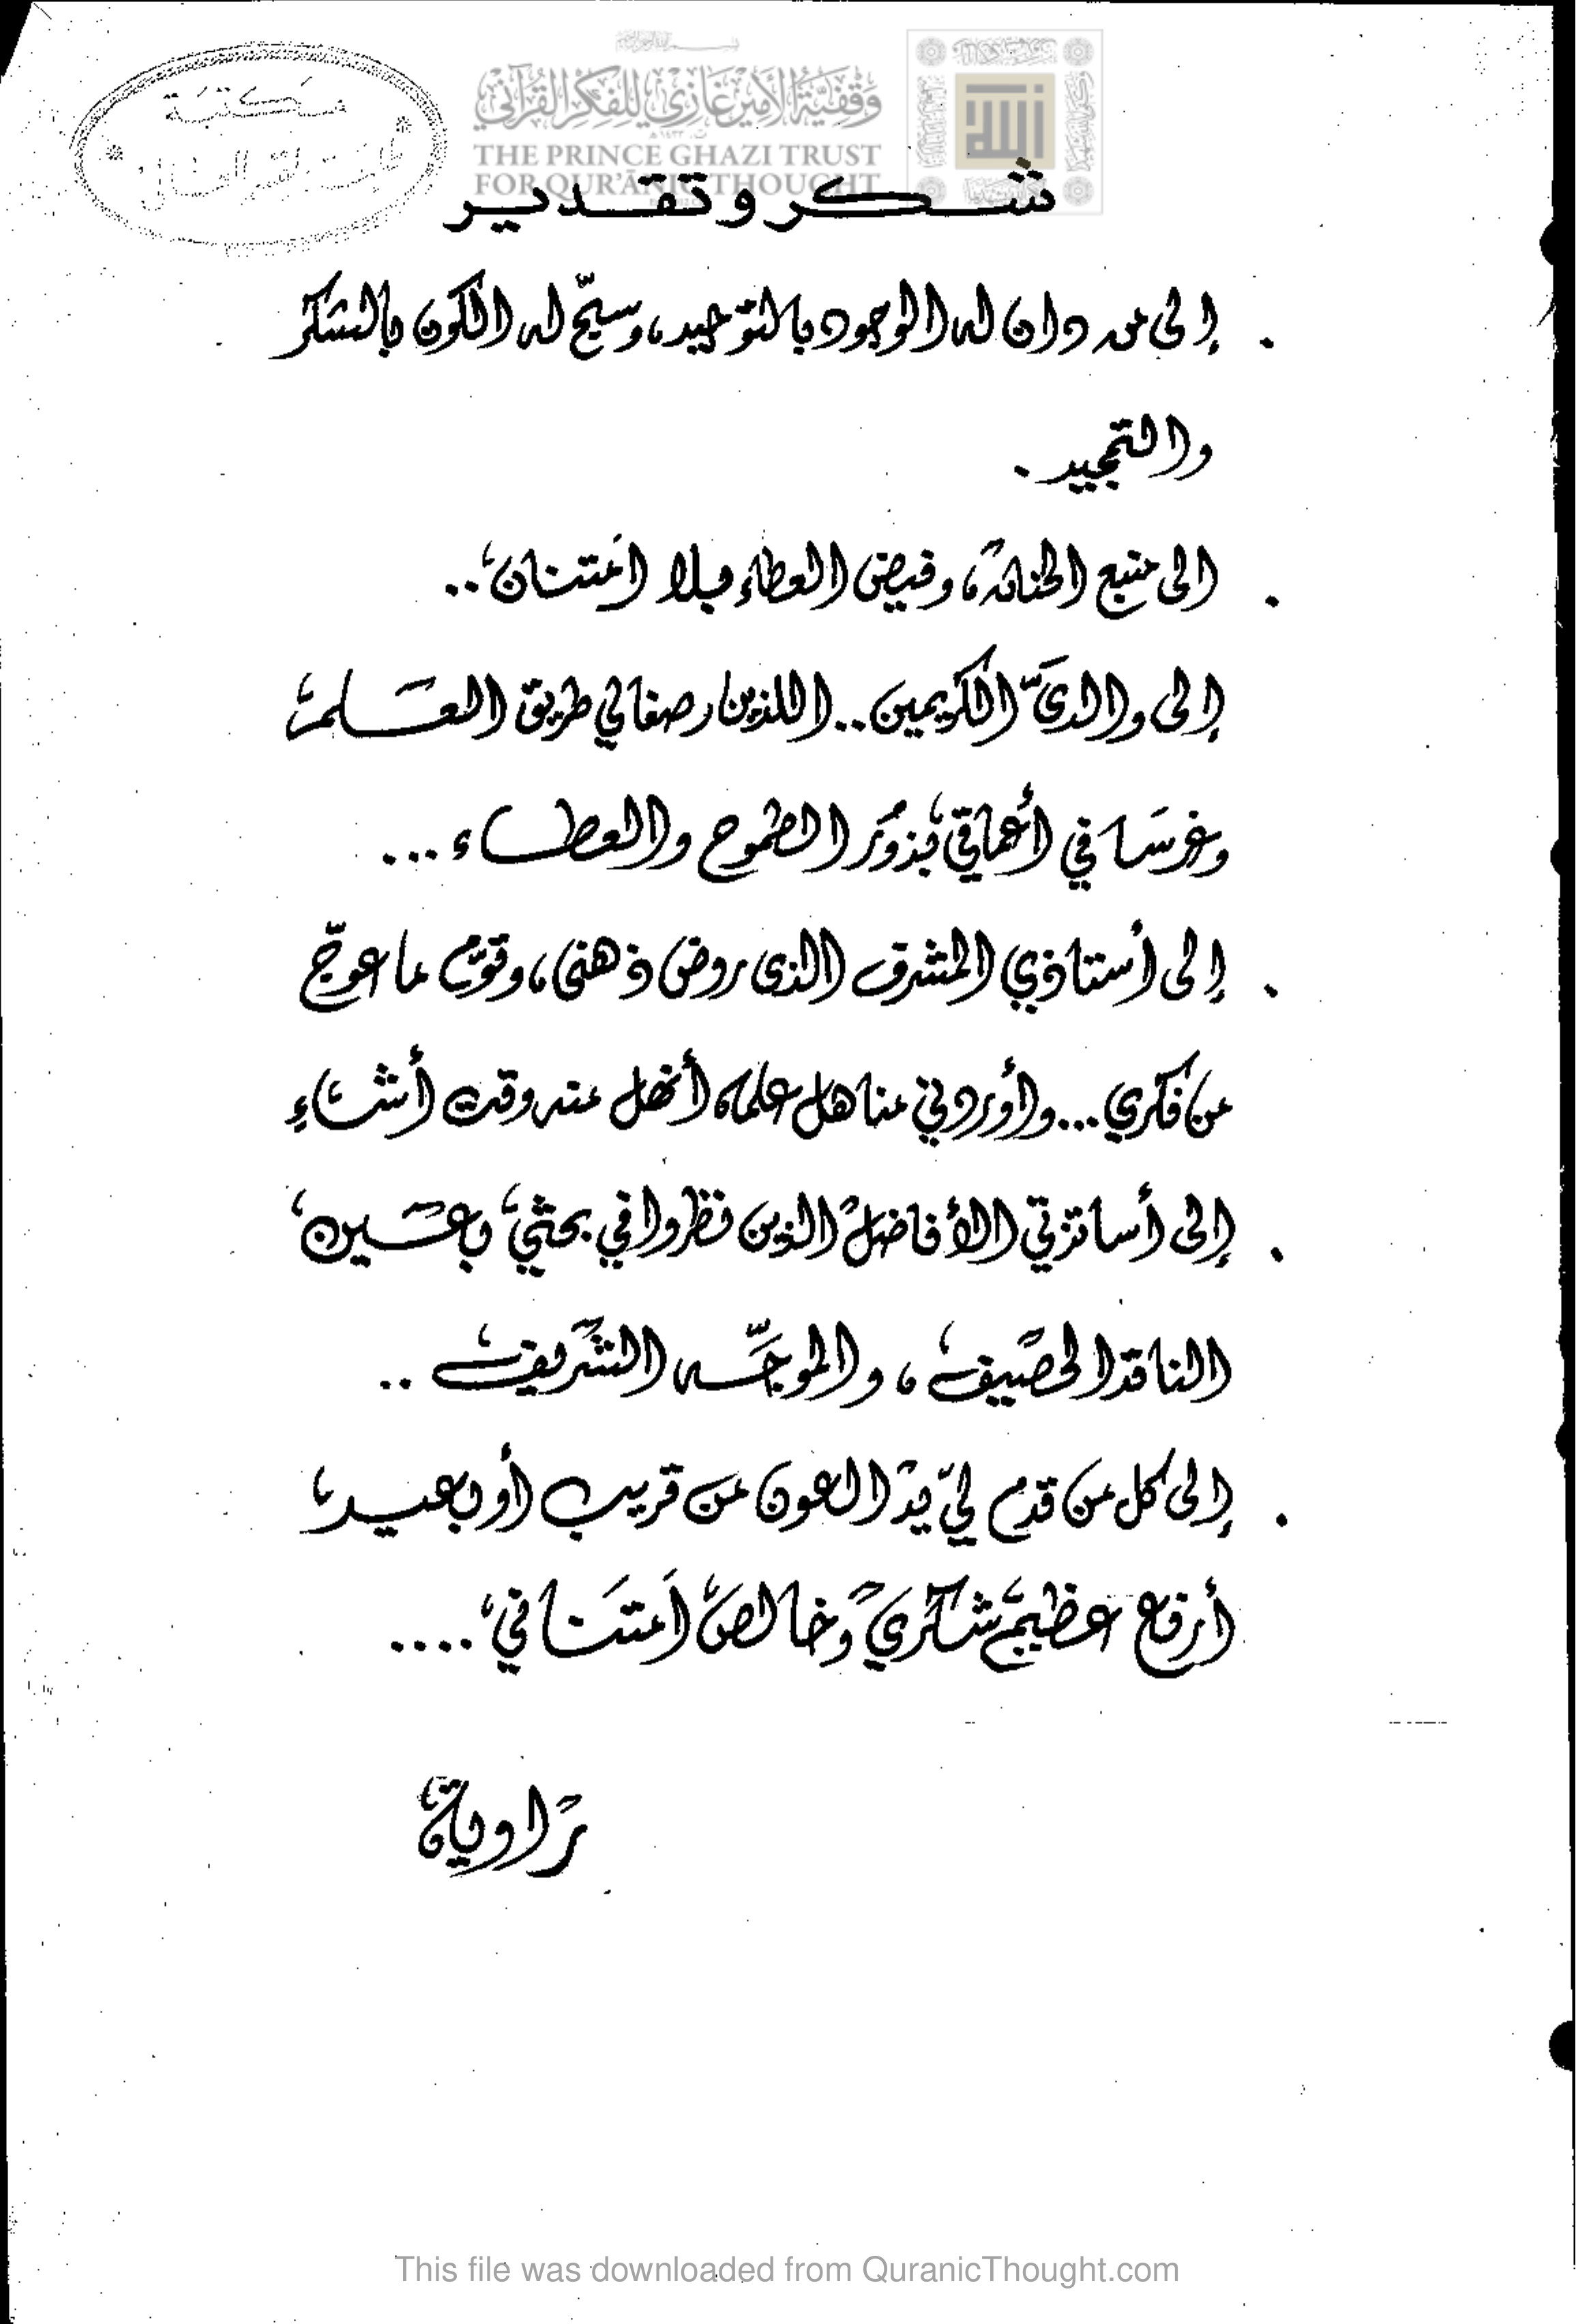 مكتبة
وقفية الأمير غازي للفكر القرآني
THE PRINCE GHAZI TRUST
FOR QUR'ĀNIC THOUGHT
شكر وتقدير
. إلى من دان له الوجود بالتوحيد، وسبّح له الكون بالشكر
والتمجيد .
. الى منبع الحنان، وفيض العطاء بلا امتنان ..
إلى والديَّ الكريمين .. اللذين رصفا لي طريق العلم
وغرسا في أعماقي بذور الطموح والعطاء ...
. إلى أستاذي المشرف الذي روض ذهني، وقوّم ما عوجّ
من فكري ... وأوردني مناهل علمه أنهل منه وقت أشاء
. إلى أساتذتي الأفاضل الذين نظروا في بحثي بعين
الناقد الحصيف، والموجّه الشريف ..
. إلى كل من قدم لي يد العون من قريب أو بعيد
أرفع عظيم شكري وخالص امتناني ....
راوية
This file was downloaded from QuranicThought.com